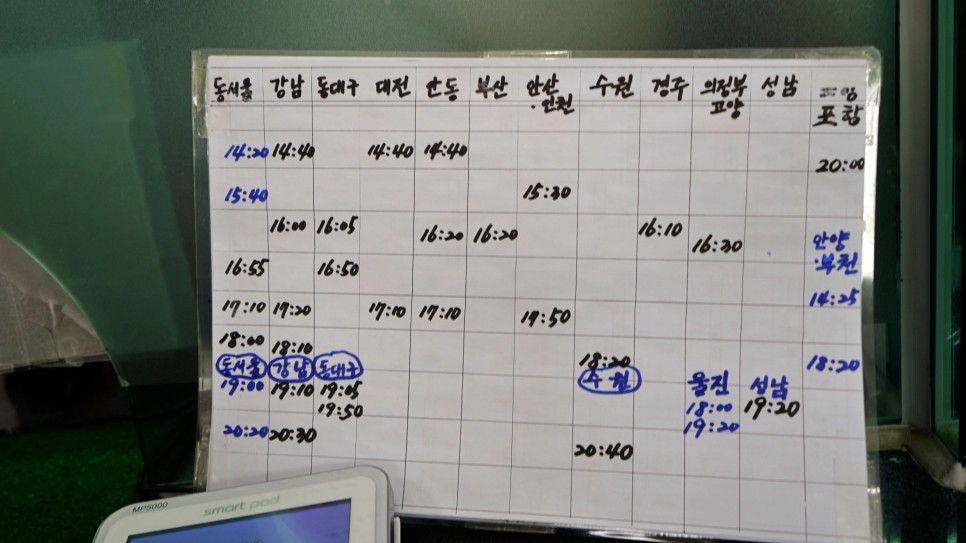 동서울 강남 동대구 대전 안동 부산 안산 수원 경주 의정부 성남
·인천 고양 포항
14:20 14:40 14:40 14:40 20:00
15:40 15:30
16:00 16:05 16:20 16:20 16:10 16:30 안양
·부천
16:55 16:50
17:10 17:20 17:10 17:10 17:50 14:25
18:00 18:10 18:20 18:20
동서울 강남 동대구 수원 울진 성남
19:00 19:10 19:05 18:00 19:20
19:50 19:20
20:20 20:30 20:40
MP5000 smart pad